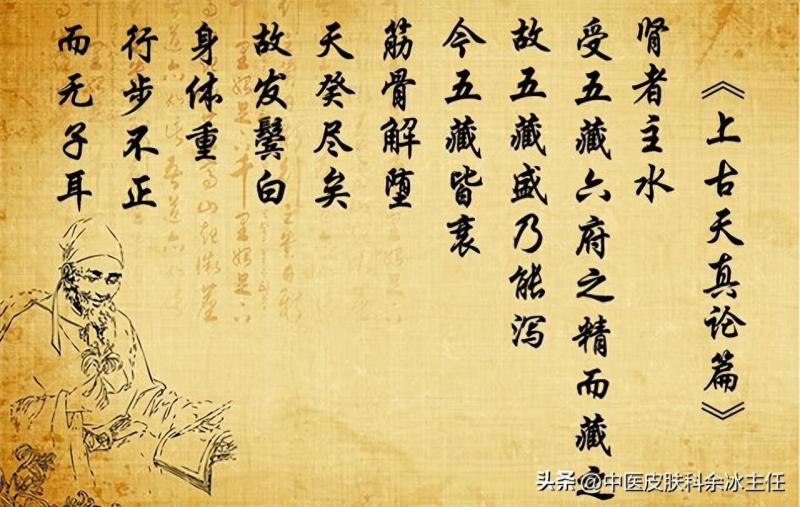 《上古天真论篇》
肾者主水
受五藏六府之精而藏之
故五藏盛乃能泻
今五藏皆衰
筋骨解堕
天癸尽矣
故发鬓白
身体重
行步不正
而无子耳
头条 @中医皮肤科余冰主任